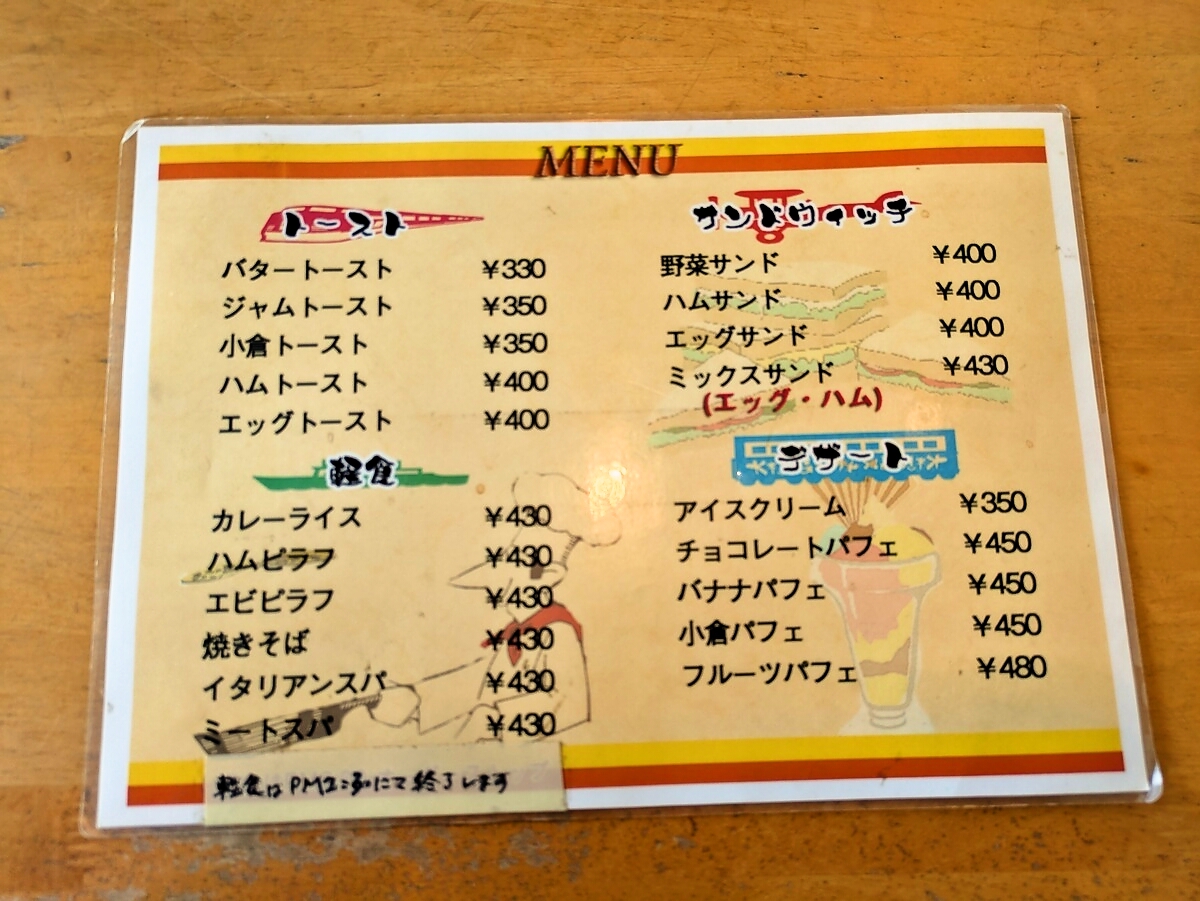 MENU
トースト
バタートースト ￥330
ジャムトースト ￥350
小倉トースト ￥350
ハムトースト ￥400
エッグトースト ￥400
軽食
カレーライス ￥430
ハムピラフ ￥430
エビピラフ ￥430
焼きそば ￥430
イタリアンスパ ￥430
ミートスパ ￥430
軽食はPM2:30にて終了します
サンドウィッチ
野菜サンド ￥400
ハムサンド ￥400
エッグサンド ￥400
ミックスサンド ￥430
(エッグ・ハム)
デザート
アイスクリーム ￥350
チョコレートパフェ ￥450
バナナパフェ ￥450
小倉パフェ ￥450
フルーツパフェ ￥480